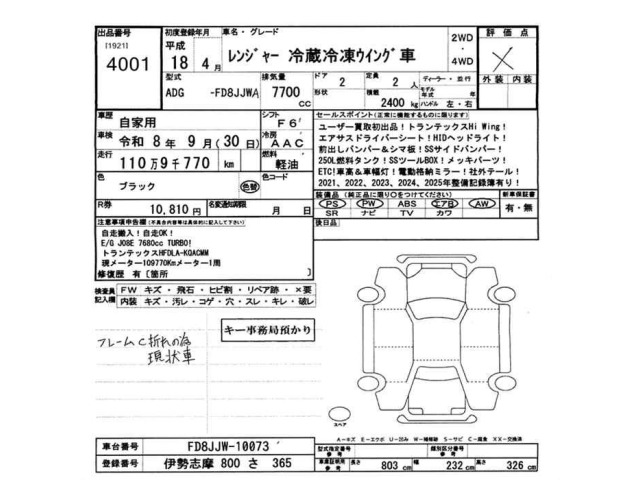 出品番号 初度登録年月 車名・グレード 2WD ・ 4WD 評価点
[1921] 4001 平成 18年 4月 レンジャー 冷蔵冷凍ウイング車 X
外装 内装
型式 排気量 ドア 2 定員 2人 ディーラー・並行
ADG -FD8JJWA 7700 cc 形状 積載 2400 kg モデル年式 年 ハンドル 左・右
車歴 自家用 シフト F6 セールスポイント(正常に機能するものに限ります)
車検 令和 8年 9月 (30日) 冷房 AAC
走行 110万9千770 km 燃料 軽油
色 ブラック 色替 色コード
R券 10,810円 名変通知期限 月 日
ユーザー買取初出品!トランテックスHi Wing!
エアサスドライバーシート!HIDヘッドライト!
前出しバンパー&シマ板!SSサイドバンパー!
250L燃料タンク!SSツールBOX!メッキパーツ!
ETC!車高&車幅灯!電動格納ミラー!社外テール!
2021、2022、2023、2024、2025年整備記録簿有り!
装備品(純正品に限り○をつけてください) 新車保証書
PS PW ABS エアB AW 有・無
SR ナビ TV カワ
後日品
注意事項申告欄(不具合内容等は具体的に記入して下さい)
自走搬入!自走OK!
E/G J08E 7680cc TURBO!
トランテックスHFDLA-KQACMM
現メーター109770Kmメーター1周
修復歴 有〔箇所 〕
検査員記入欄 FW キズ・飛石・ヒビ割・リペア跡・×要
内装 キズ・汚レ・コゲ・穴・スレ・キレ・破レ
キー事務局預かり
フレームC折れの為
現状車
スペア
A=キズ E=エクボ U=凹み W=補修跡 S=サビ C=腐食 XX=交換済
車台番号 FD8JJW-10073
登録番号 伊勢志摩 800 さ 365
型式指定番号 参考 類別区分番号 参考
車庫証明用 参考 長さ 803 cm 幅 232 cm 高さ 326 cm